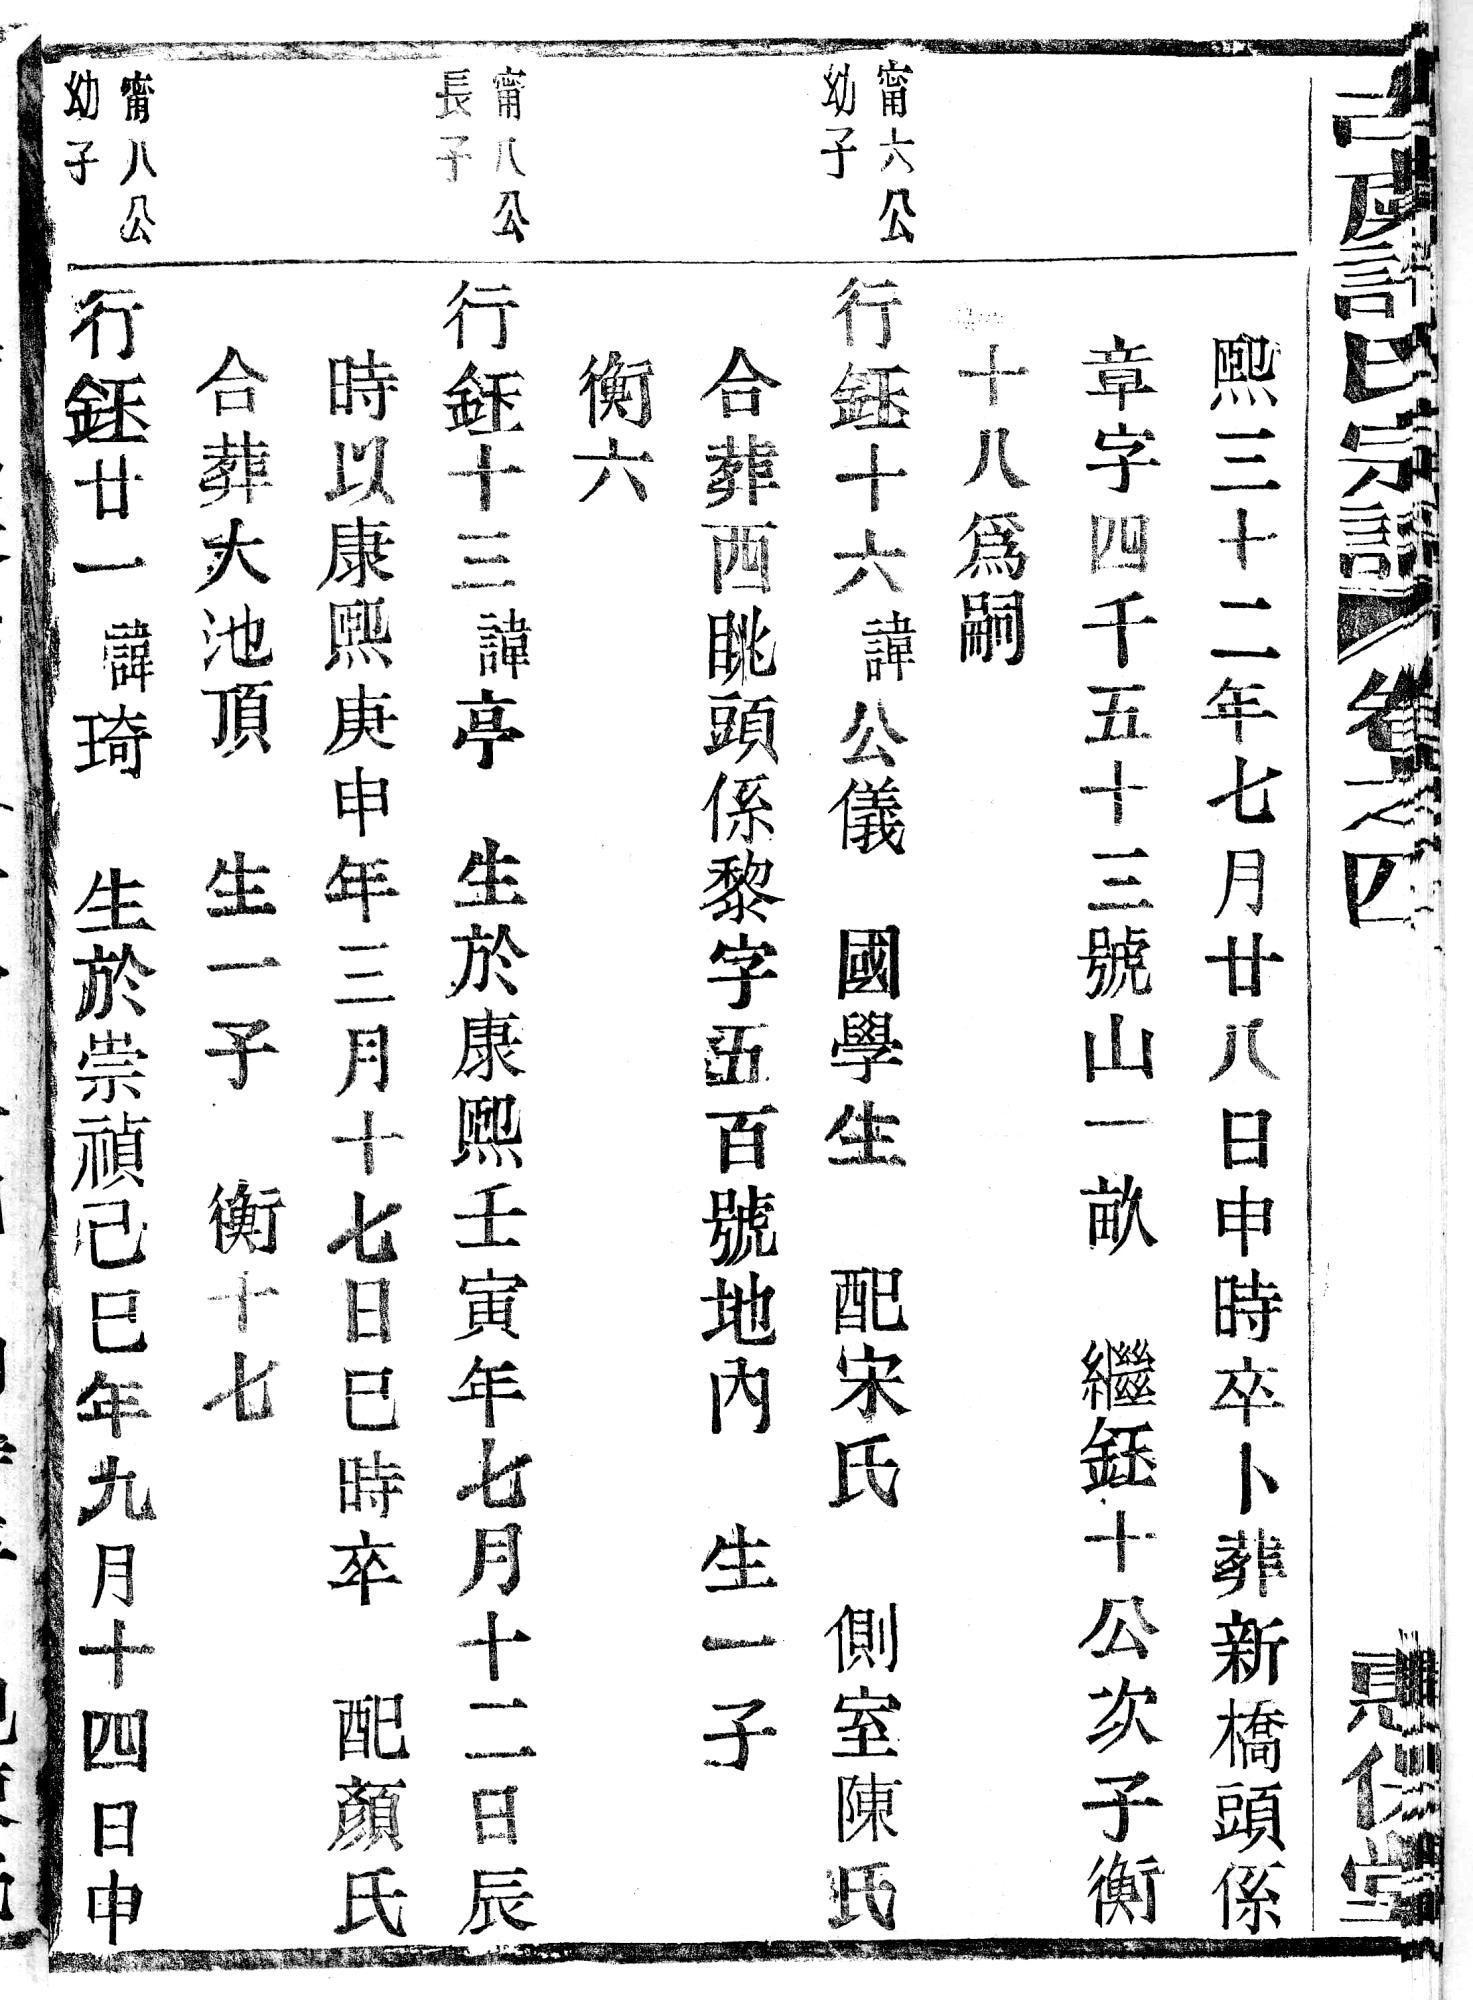 熙三十二年七月廿八日申時卒卜葬新橋頭係
章字四千五十三號山一畝 繼鈺十公次子衡
十八爲嗣
甯六公
幼子
行鈺十六 諱公儀 國學生 配宋氏 側室陳氏
合葬西眺頭係黎字五百號地內 生一子
衡六
甯八公
長子
行鈺十三 諱亭 生於康熙壬寅年七月十二日辰
時以康熙庚申年三月十七日巳時卒 配顏氏
合葬大池頂 生一子 衡十七
甯八公
幼子
行鈺廿一 諱琦 生於崇禎己巳年九月十四日申